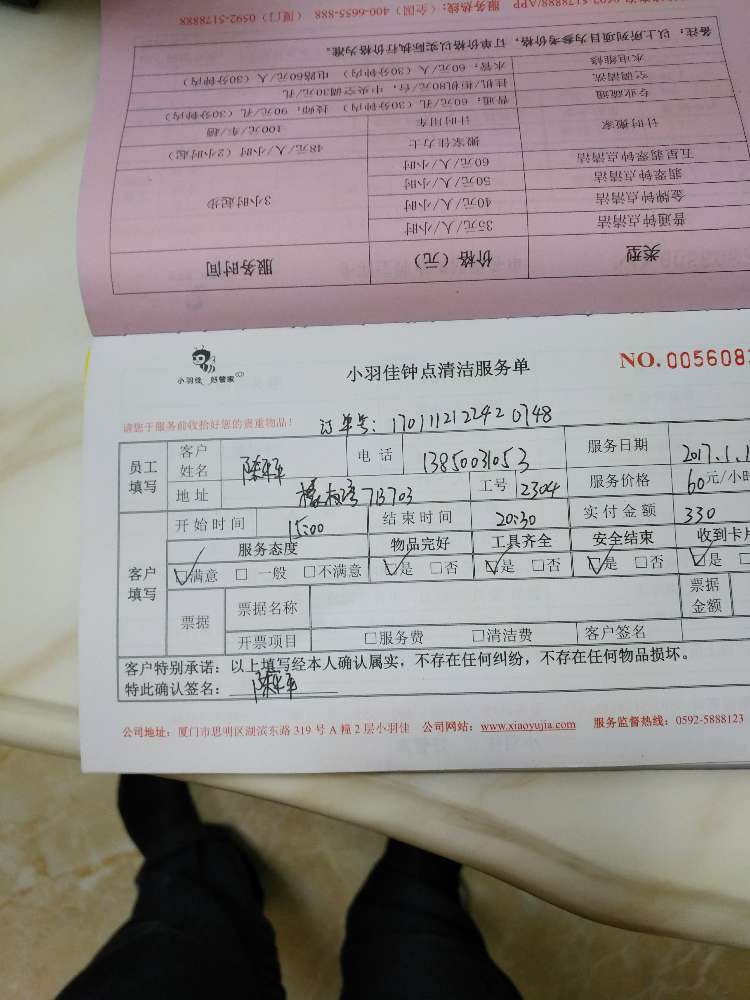 服务热线：400-6655-888（全国） 0592-5178888（厦门）
备注：以上所列项目为参考价格，订单价格以实际执行价格为准。
类型 价格（元） 服务时间
普通钟点清洁 35元/人/小时 3小时起步
金牌钟点清洁 40元/人/小时
翡翠钟点清洁 50元/人/小时
五星翡翠钟点清洁 60元/人/小时
计时搬家 搬家佳力士 48元/人/小时（2小时起）
计时用车 100元/车/趟
专业疏通 普通：60元/孔（30分钟内） 技师：90元/孔（30分钟内）
空调清洗 挂机柜机80元/台，中央空调30元/孔
水电维修 水管：60元/人（30分钟内） 电路60元/人（30分钟内）
小羽佳 好管家
小羽佳钟点清洁服务单
NO. 005608
请您于服务前收拾好您的贵重物品！
订单号：
员工填写 客户姓名 电话 13850031053 服务日期 2017.1.1
地址 713703 工号 2304 服务价格 60元/小时
客户填写 开始时间 15:00 结束时间 20:30 实付金额 330
服务态度 物品完好 工具齐全 安全结束 收到卡片
满意 一般 不满意 是 否 是 否 是 否 是
票据 票据名称 票据金额
开票项目 服务费 清洁费 客户签名
客户特别承诺：以上填写经本人确认属实，不存在任何纠纷，不存在任何物品损坏。
特此确认签名：
公司地址：厦门市思明区湖滨东路319号A幢2层小羽佳 公司网站：www.xiaoyujia.com 服务监督热线：0592-5888123